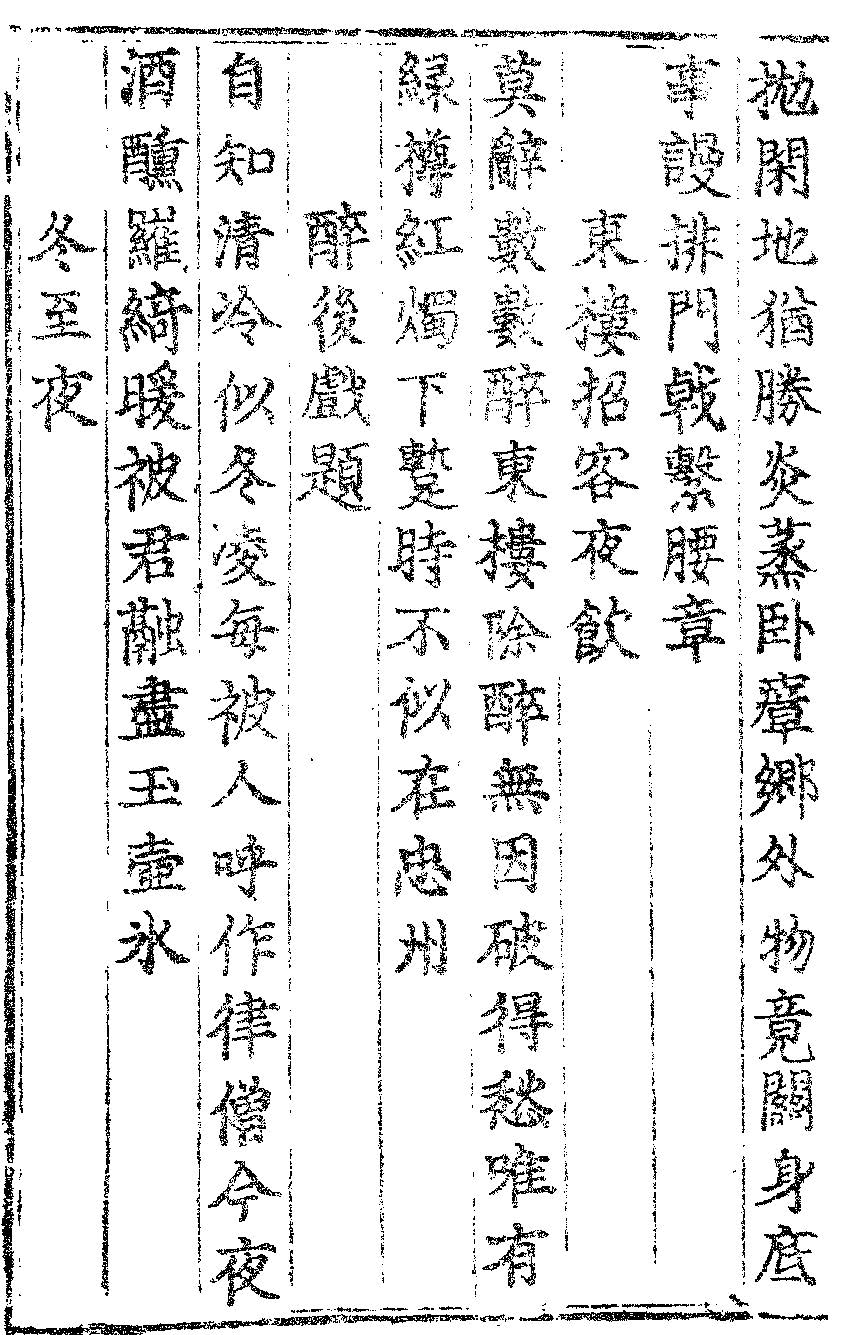 拋閑地猶勝炎蒸卧瘴鄉外物竟關身底
事謾排門戟繫腰章
東樓招客夜飲
莫辭數數醉東樓除醉無因破得愁唯有
緑樽紅燭下蹔時不似在忠州
醉後戲題
自知清冷似冬凌每被人呼作律僧今夜
酒醺羅綺暖被君融盡玉壺氷
冬至夜